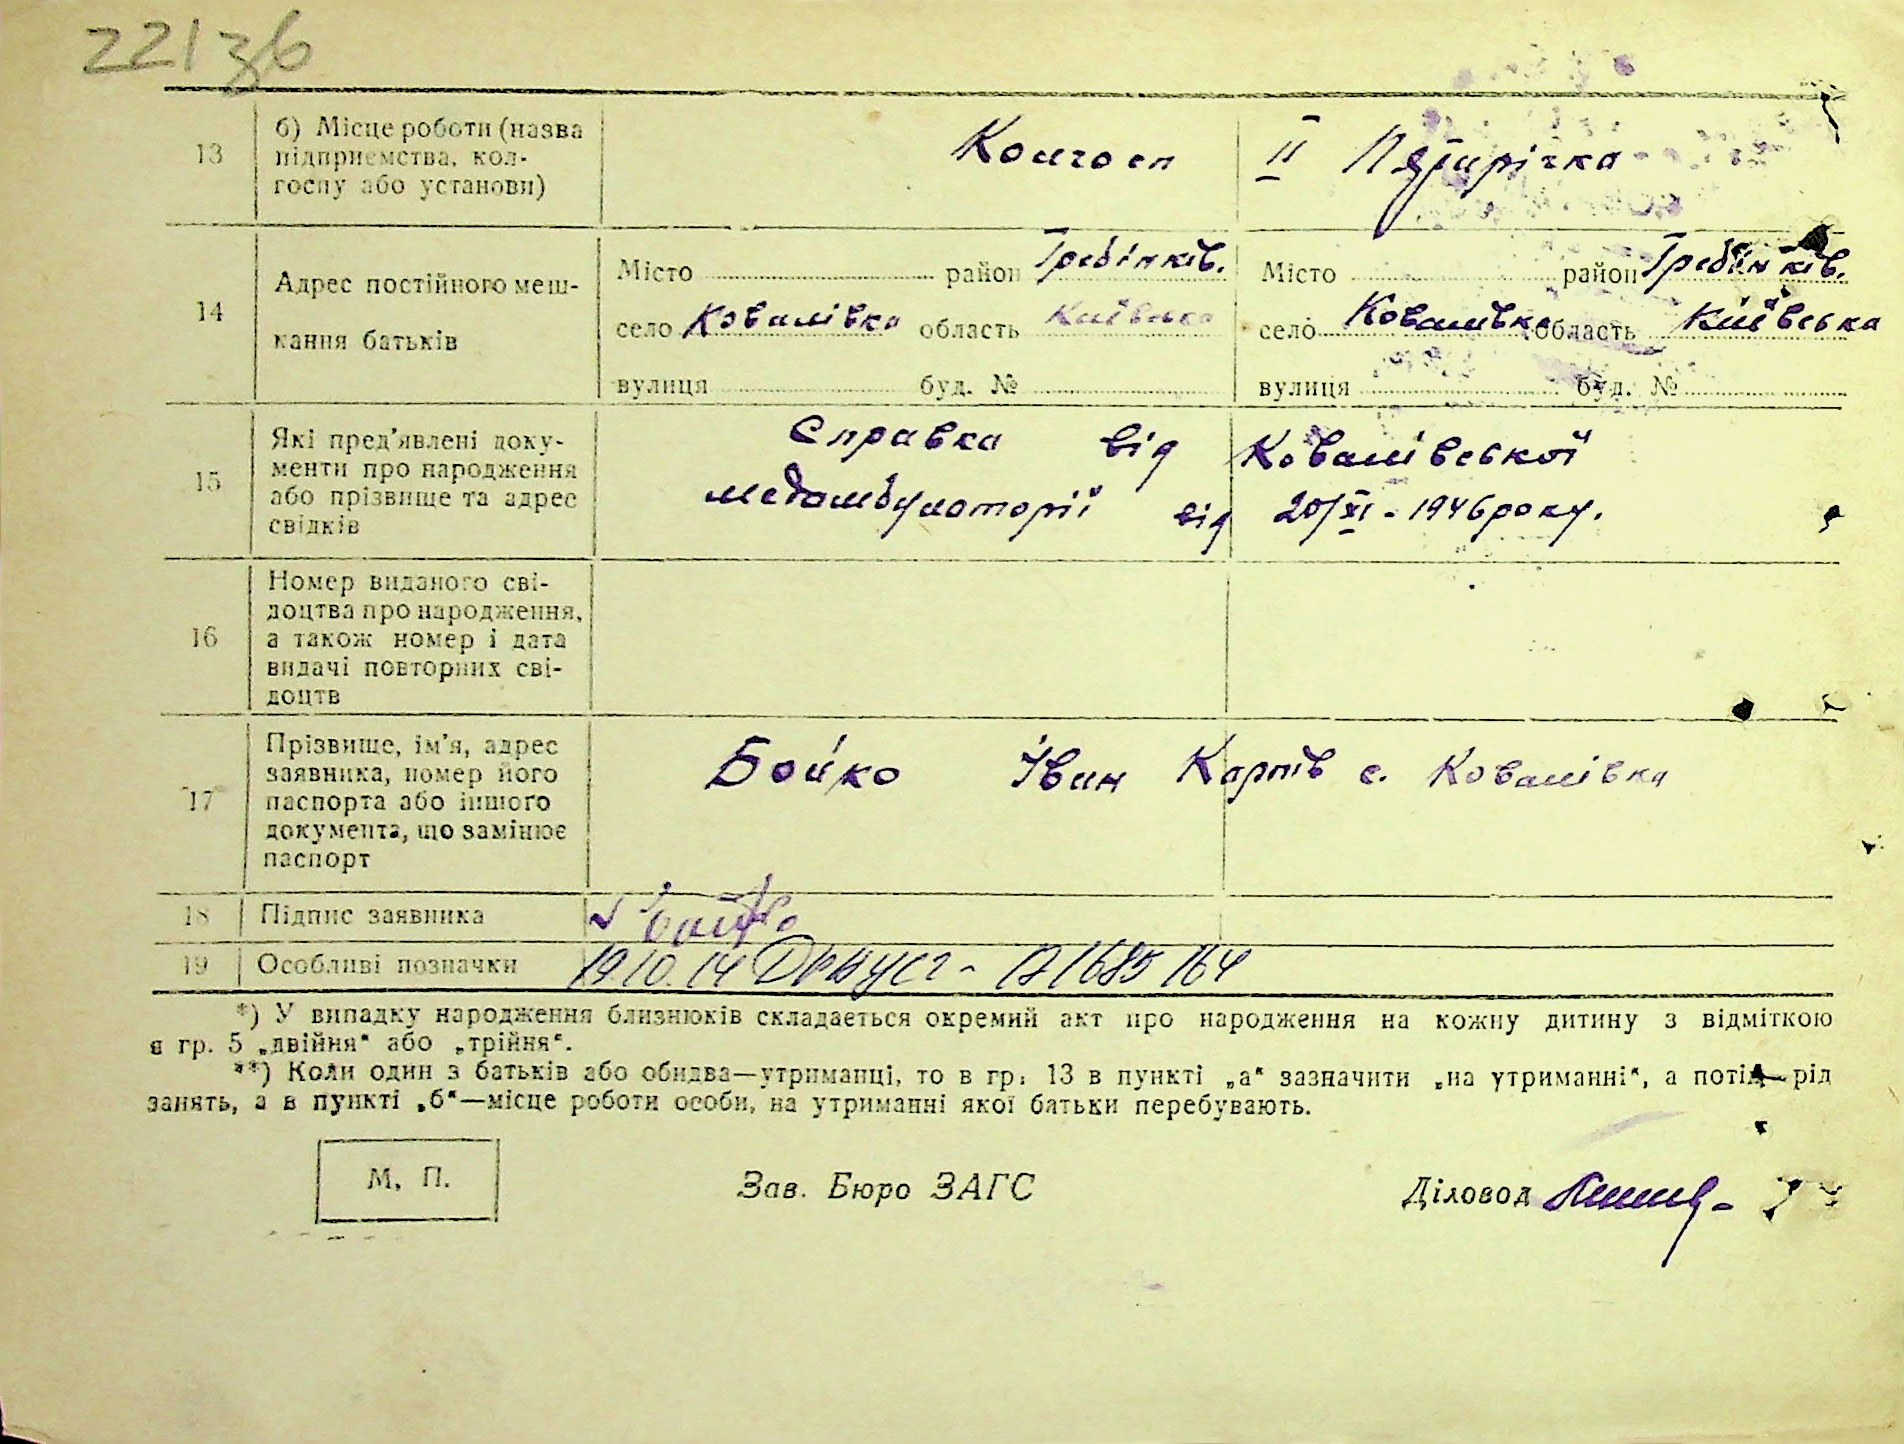 221зб
13 б) Місце роботи (назва
підприємства, кол-
госпу або установи)
Колгосп ІІ Пятирічка
14 Адрес постійного меш-
кання батьків
Місто район Гребінків. Місто район Гребінків.
село Ковалівка область Київська село Ковалівка область Київська
вулиця буд. № вулиця буд. №
15 Які пред'явлені доку-
менти про народження
або прізвище та адрес
свідків
Справка від Ковалівської
медамбулаторії від 20/XI - 1946 року.
16 Номер виданого сві-
доцтва про народження,
а також номер і дата
видачі повторних сві-
доцтв
17 Прізвище, ім'я, адрес
заявника, номер його
паспорта або іншого
документа, що замінює
паспорт
Бойко Іван Карпів с. Ковалівка
18 Підпис заявника Бойко
19 Особливі позначки 19.10.14
*) У випадку народження близнюків складається окремий акт про народження на кожну дитину з відміткою
в гр. 5 „двійня“ або „трійня“.
**) Коли один з батьків або обидва—утриманці, то в гр. 13 в пункті „а“ зазначити „на утриманні“, а потім рід
занять, а в пункті „б“—місце роботи особи, на утриманні якої батьки перебувають.
М. П. Зав. Бюро ЗАГС Діловод